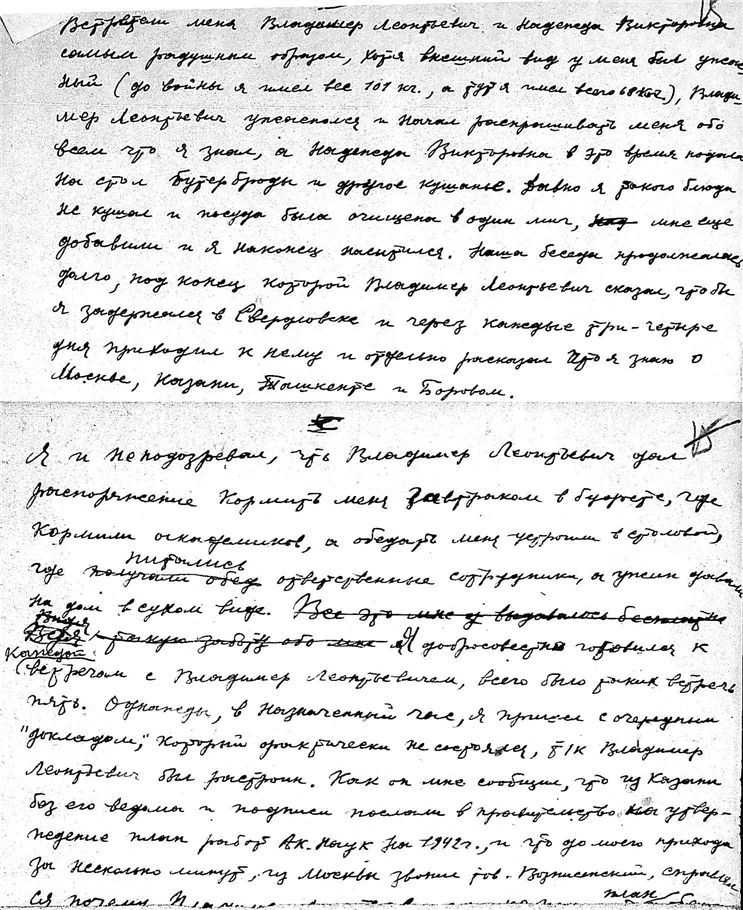 Встретели меня Владимер Леонтьевич и Надежда Викторовна
самым радушным образом, хотя внешний вид у меня был ужас-
ный (до войны я имел вес 101 кг., а тут я имел всего 68 кг.), Влади-
мер Леонтьевич ужаснолся и начал распрашивать меня обо
всем что я знал, а Надежда Викторовна в это время подала
на стол бутерброды и другое кушанье. Давно я такого блюда
не кушал и посуда была очищена в один миг, мне еще
добавили и я наконец наситился. Наша беседа продолжалась
долго, под конец которой Владимер Леонтьевич сказал, чтобы
я задержался в Свердловске и через каждые три-четыре
дня приходил к нему и отдельно расказал что я знаю о
Москве, Казани, Ташкенте и Боровом.
Я и неподозревал, что Владимер Леонтьевич дал
распоряжение кормить меня завтраком в буфете, где
кормили академиков, а обедать меня устроили в столовой,
питались
где получали обед ответственные сотрудники, а ужин давали
на дом в сухом виде. Все это мне выдавалось
Видя
такую заботу обо мне я добросовестно готовился к
каждой
встречам с Владимер Леонтьевичем, всего было таких встречь
пять. Однажды, в назначенный час, я пришел с очередным
"докладом," который фактически не состоялся, т/к Владимер
Леонтьевич был растроин. Как он мне сообщил, что из Казани
без его ведома и подписи послали в правительство на утвер-
ждение план работ Ак. Наук на 1942г., и что до моего прихода
за несколько минут, из Москвы звонил тов. Вознесенский, справлял-
план
ся почему